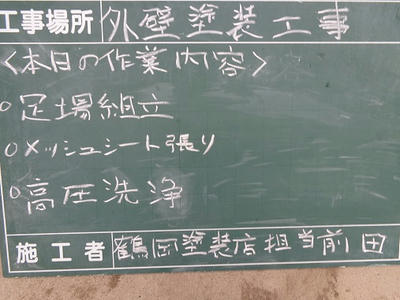 工事場所 外壁塗装工事
<本日の作業内容>
○足場組立
○メッシュシート張り
○高圧洗浄
施工者 鶴岡塗装店担当前田